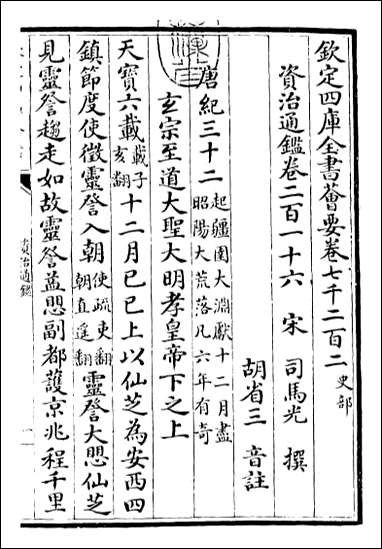 欽定四庫全書薈要卷七千二百二 史部
資治通鑑卷二百一十六
宋 司馬光 撰
胡省三 音註
唐紀三十二 起疆圉大淵獻十二月盡昭陽大荒落凡六年有奇
玄宗至道大聖大明孝皇帝下之上
天寶六載 載子亥翻 十二月己巳上以仙芝為安西四
鎮節度使徵靈詧入朝 使疏吏翻朝直遥翻 靈詧大愳仙芝
見靈詧趨走如故靈詧益愳副都護京兆程千里
資治通鑑